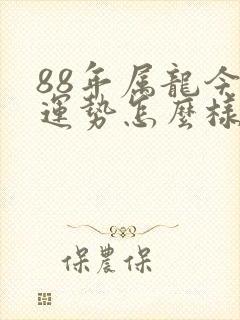 88年属龍今
運势怎麼樣
保農保